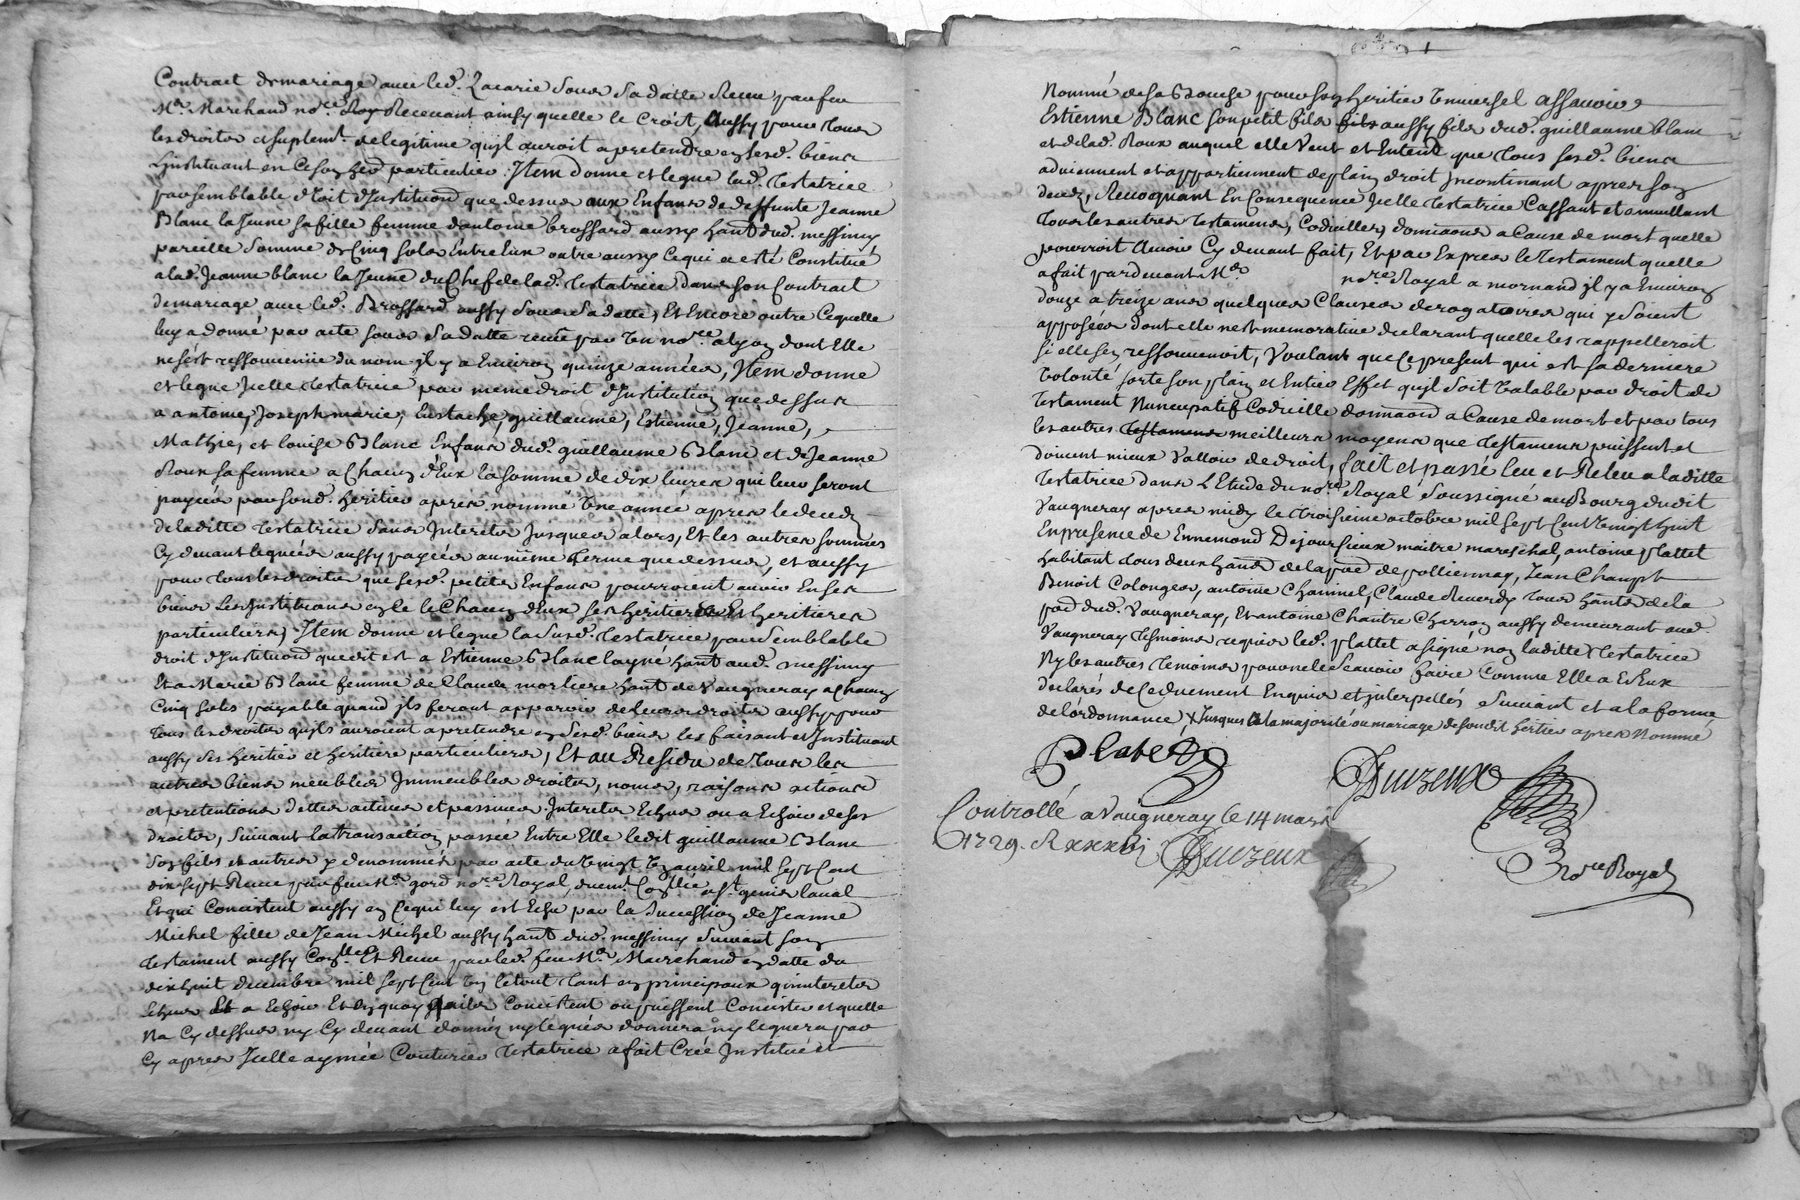 Contract de mariage avec led. Zacarie sous sa datte Receu par feu
Mr. Marchand nore. Roy Recevant ainsy quelle le Croit, Aussy pour tous
les droits et suplemt. de legitime quil auroit a pretendre es sesd. biens
Linstituant en ce son herr. particulier. Item donne et legue lad. Testatrice
par semblable droit d'Institution que dessus aux Enfans de deffunte Jeanne
Blanc la Jeune sa fille femme d'antoine brossard aussy hant. dud. messimy
pareille somme de Cinq sols Entre Eux outre aussy ce qui a esté Constitué
a lad. Jeanne blanc la Jeune du Chef de lad. Testatrice dans son Contract
de mariage avec led. Brossard aussy sous sa datte, Et Encore outre Ce quelle
luy a donné par acte sous sa datte receu par Un nore. a lyon dont Elle
ne s'est ressouvenüe du nom il y a Environ quinze années, Item donne
et legue Icelle Testatrice par meme droit d'Institution que dessus
a antoine, Joseph marie, Eustache, guillaume, Estienne, Jeanne,
Mathie, et louise Blanc Enfans dud. guillaume Blanc et de Jeanne
Roux sa femme a Chacun d'Eux la somme de dix livres qui leur seront
payées par sond. heritier apres nommé Une année apres le deceds
de laditte Testatrice sans Interets Jusques alors, Et les autres sommes
Cy devant leguées aussy payées au même Terme que dessus, et aussy
pour tous les droits que sesd. petits Enfans pourroient avoir En ses
biens Les Instituans en ce le Chacun d'Eux ses heritiers Et heritieres
particuliers, Item donne et legue la susd. Testatrice par semblable
droit d'Institution que dit est a Estienne Blanc layné hant. aud. messimy
Et a Marie Blanc femme de Claude morliere hant. de Vaugneray a Chacun
Cinq sols payable quand ils feront apparoir de leurs droits aussy pour
tous les droits quils auroient a pretendre en sesd. biens les faisant et Instituant
aussy ses heritier et heritiere particuliers, Et au Residu de tous les
autres biens meubles Immeubles droits, noms, raisons actions
et pretentions dettes actives et passives Interets Echus ou a Echoir de ses
droits, suivant la transaction passée Entre Elle ledit guillaume Blanc
son fils et autres y denommés par acte du Vingt Un avril mil sept Cent
dix sept Receu par feu Mr. gord nore. Royal, duemt. Conllé a st. genis laval
Et qui Consistent aussy en Ce qui luy est Echu par la Succession de Jeanne
Michel fille de Jean Michel aussy hant. dud. messimy suivant son
Testament aussy Conllé Et Receu par led. feu Mr. Marchand en datte du
dix huit decembre mil sept Cent Un le tout tant en principaux qu'interets
Echus Et a Echoir Et En quoy quils Consistent ou puissent Consister et quelle
Na Cy dessus ny Cy devant donnés ny legués donnera ny leguera par
Cy apres Icelle aymée Couturier Testatrice a fait Créé Institué et
Nommé de sa Bouche pour son heritier Universel assavoir
Estienne Blanc son petit fils fils aussy fils dud. guillaume blanc
et de lad. Roux auquel elle Veut et Entend que tous sesd. biens
adviennent et appartiennent de plain droit Incontinant apres son
deceds, Revoquant En Consequence Icelle Testatrice Cassant et annullant
tous les autres Testamens, Codicilles, donnaons a Cause de mort quelle
pourroit Avoir Cy devant fait, Et par Expres le Testament quelle
a fait par devant Mr. nore. Royal a mornand il y a Environ
douze a treize ans quelques Clauses derogatoires qui y soient
apposées dont elle nest memorative declarant quelle les rappelleroit
si elle sen ressouvenoit, Voulant que ce present qui est sa derniere
Volonté sorte son plain et Entier Effet quil soit Valable par droit de
Testament Nuncupatif Codicille donnaon a Cause de mort et par tous
les autres Testamens meilleurs moyens que Testamens puissent et
doivent mieux Valloir de droit, fait et passé leu et Releu a laditte
Testatrice dans L'Etude du nore. Royal soussigné au Bourg dudit
Vaugneray apres midy le troisieme octobre mil sept Cent Vingt huit
En presence de Ennemond Dejoursieux maitre mareschal, antoine plattet
habitant tous deux hants. de la pse. de pollionnay, Jean Chaupt
Benoit Colonges, antoine Chaminel, Claude Reverdy tous hants. de la
psse. dud. Vaugneray, Et antoine Chantre Cherron aussy demeurant aud.
Vaugneray Tesmoins requis led. plattet a signé non laditte Testatrice
Ny les autres temoins pour ne le Scavoir faire Comme Elle a et Eux
declarés de Ce duement Enquis et interpellés suivant et a la forme
de l'ordonnance, x Jusques a la majorité ou mariage de sondit hertier apres Nommé
Platet
Duvzeux
Controllé a Vaugneray le 14 mars
1729. R xxxx Duvzeux
Nore Royal